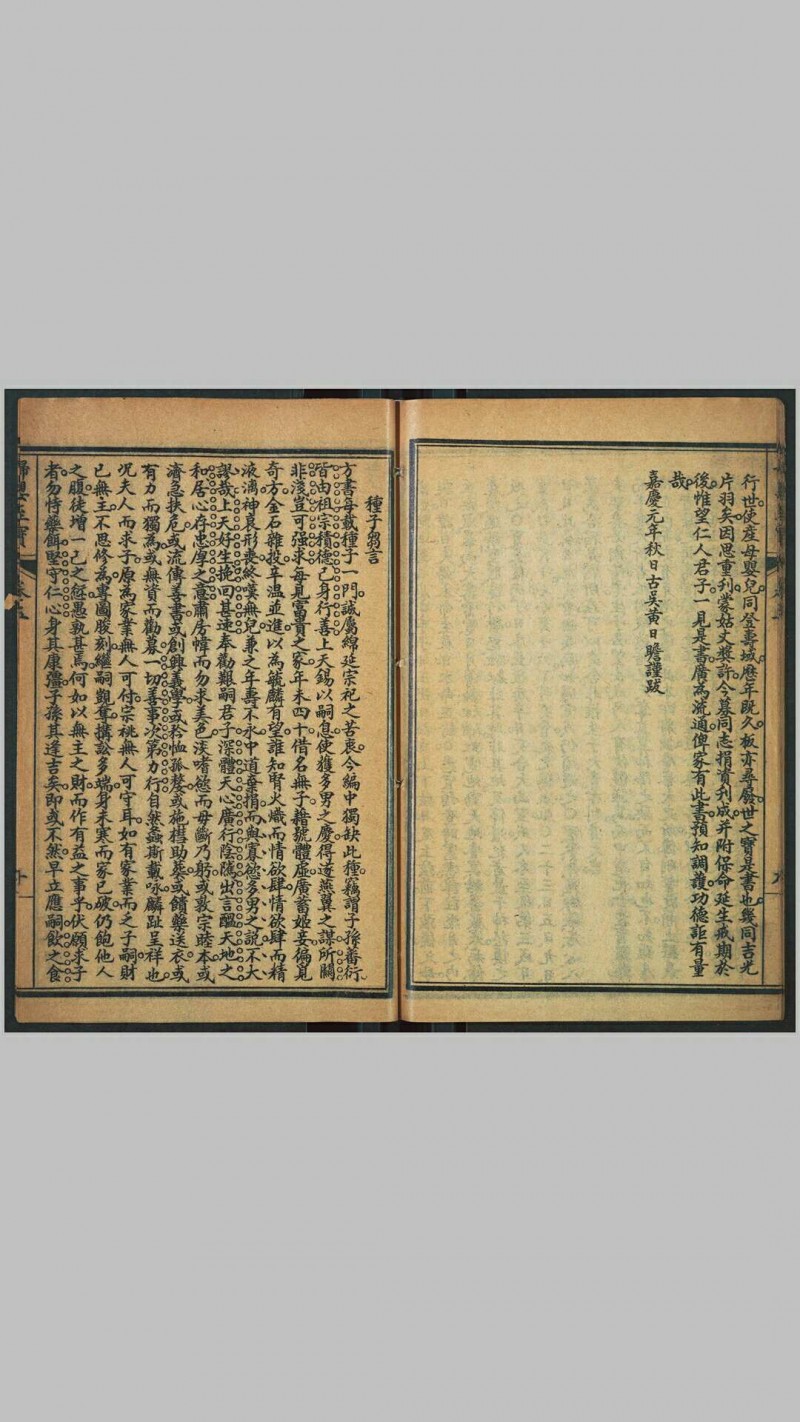 行世使產母嬰兒同登壽域歷年旣久板亦尋廢世之寶是書也幾同吉光
片羽矣因思重刋蒙姑丈獎許今募同志捐資刋成并附保命延生戒期於
後惟望仁人君子一見是書廣為流通俾家有此書預知調護功德詎有量
哉
嘉慶元年秋日古吳黃日瞻謹跋
種子芻言
方書每載種子一門誠屬綿延宗祀之苦衷今編中獨缺此種竊謂子孫蕃衍
皆由祖宗積德己身行善上天錫以嗣息使獲多男之慶得遂燕翼之謀所關
非淺豈可强求每見富貴之家年未四十借名無子藉號體虛廣蓄姬妾偏覓
奇方金石雜投辛温並進以為毓麟有望誰知腎火熾而情欲肆情欲肆而精
液漓神衰形喪終嘆無兒兼之年壽不永中道棄捐而與寡慾多男之說不大
謬哉上天好生挽回甚速奉勸艱嗣君子深體天心廣行陰隲出言醞天地之
和居心存忠厚之意肅房幃而勿求美色淡嗜慾而毋斷乃躬或敦宗睦本或
濟急扶危或流傳善書或創興義學或矜恤孤嫠或施槥助葬或饋藥送衣或
有力而獨為或無資而勸募一切善事次第力行自然螽斯載咏麟趾呈祥也
况夫人而求子原為家業無人可付宗祧無人可守耳如有家業而乏子嗣財
已無主不思修為專圖朘刻繼嗣覬奪搆訟多端身未寒而家已破仍飽他人
之腹徒增一己之愆愚孰甚焉何如以無主之財而作有益之事乎伏願求子
者勿恃藥餌堅守仁心身其康彊子孫其逢吉矣即或不然早立應嗣飲之食